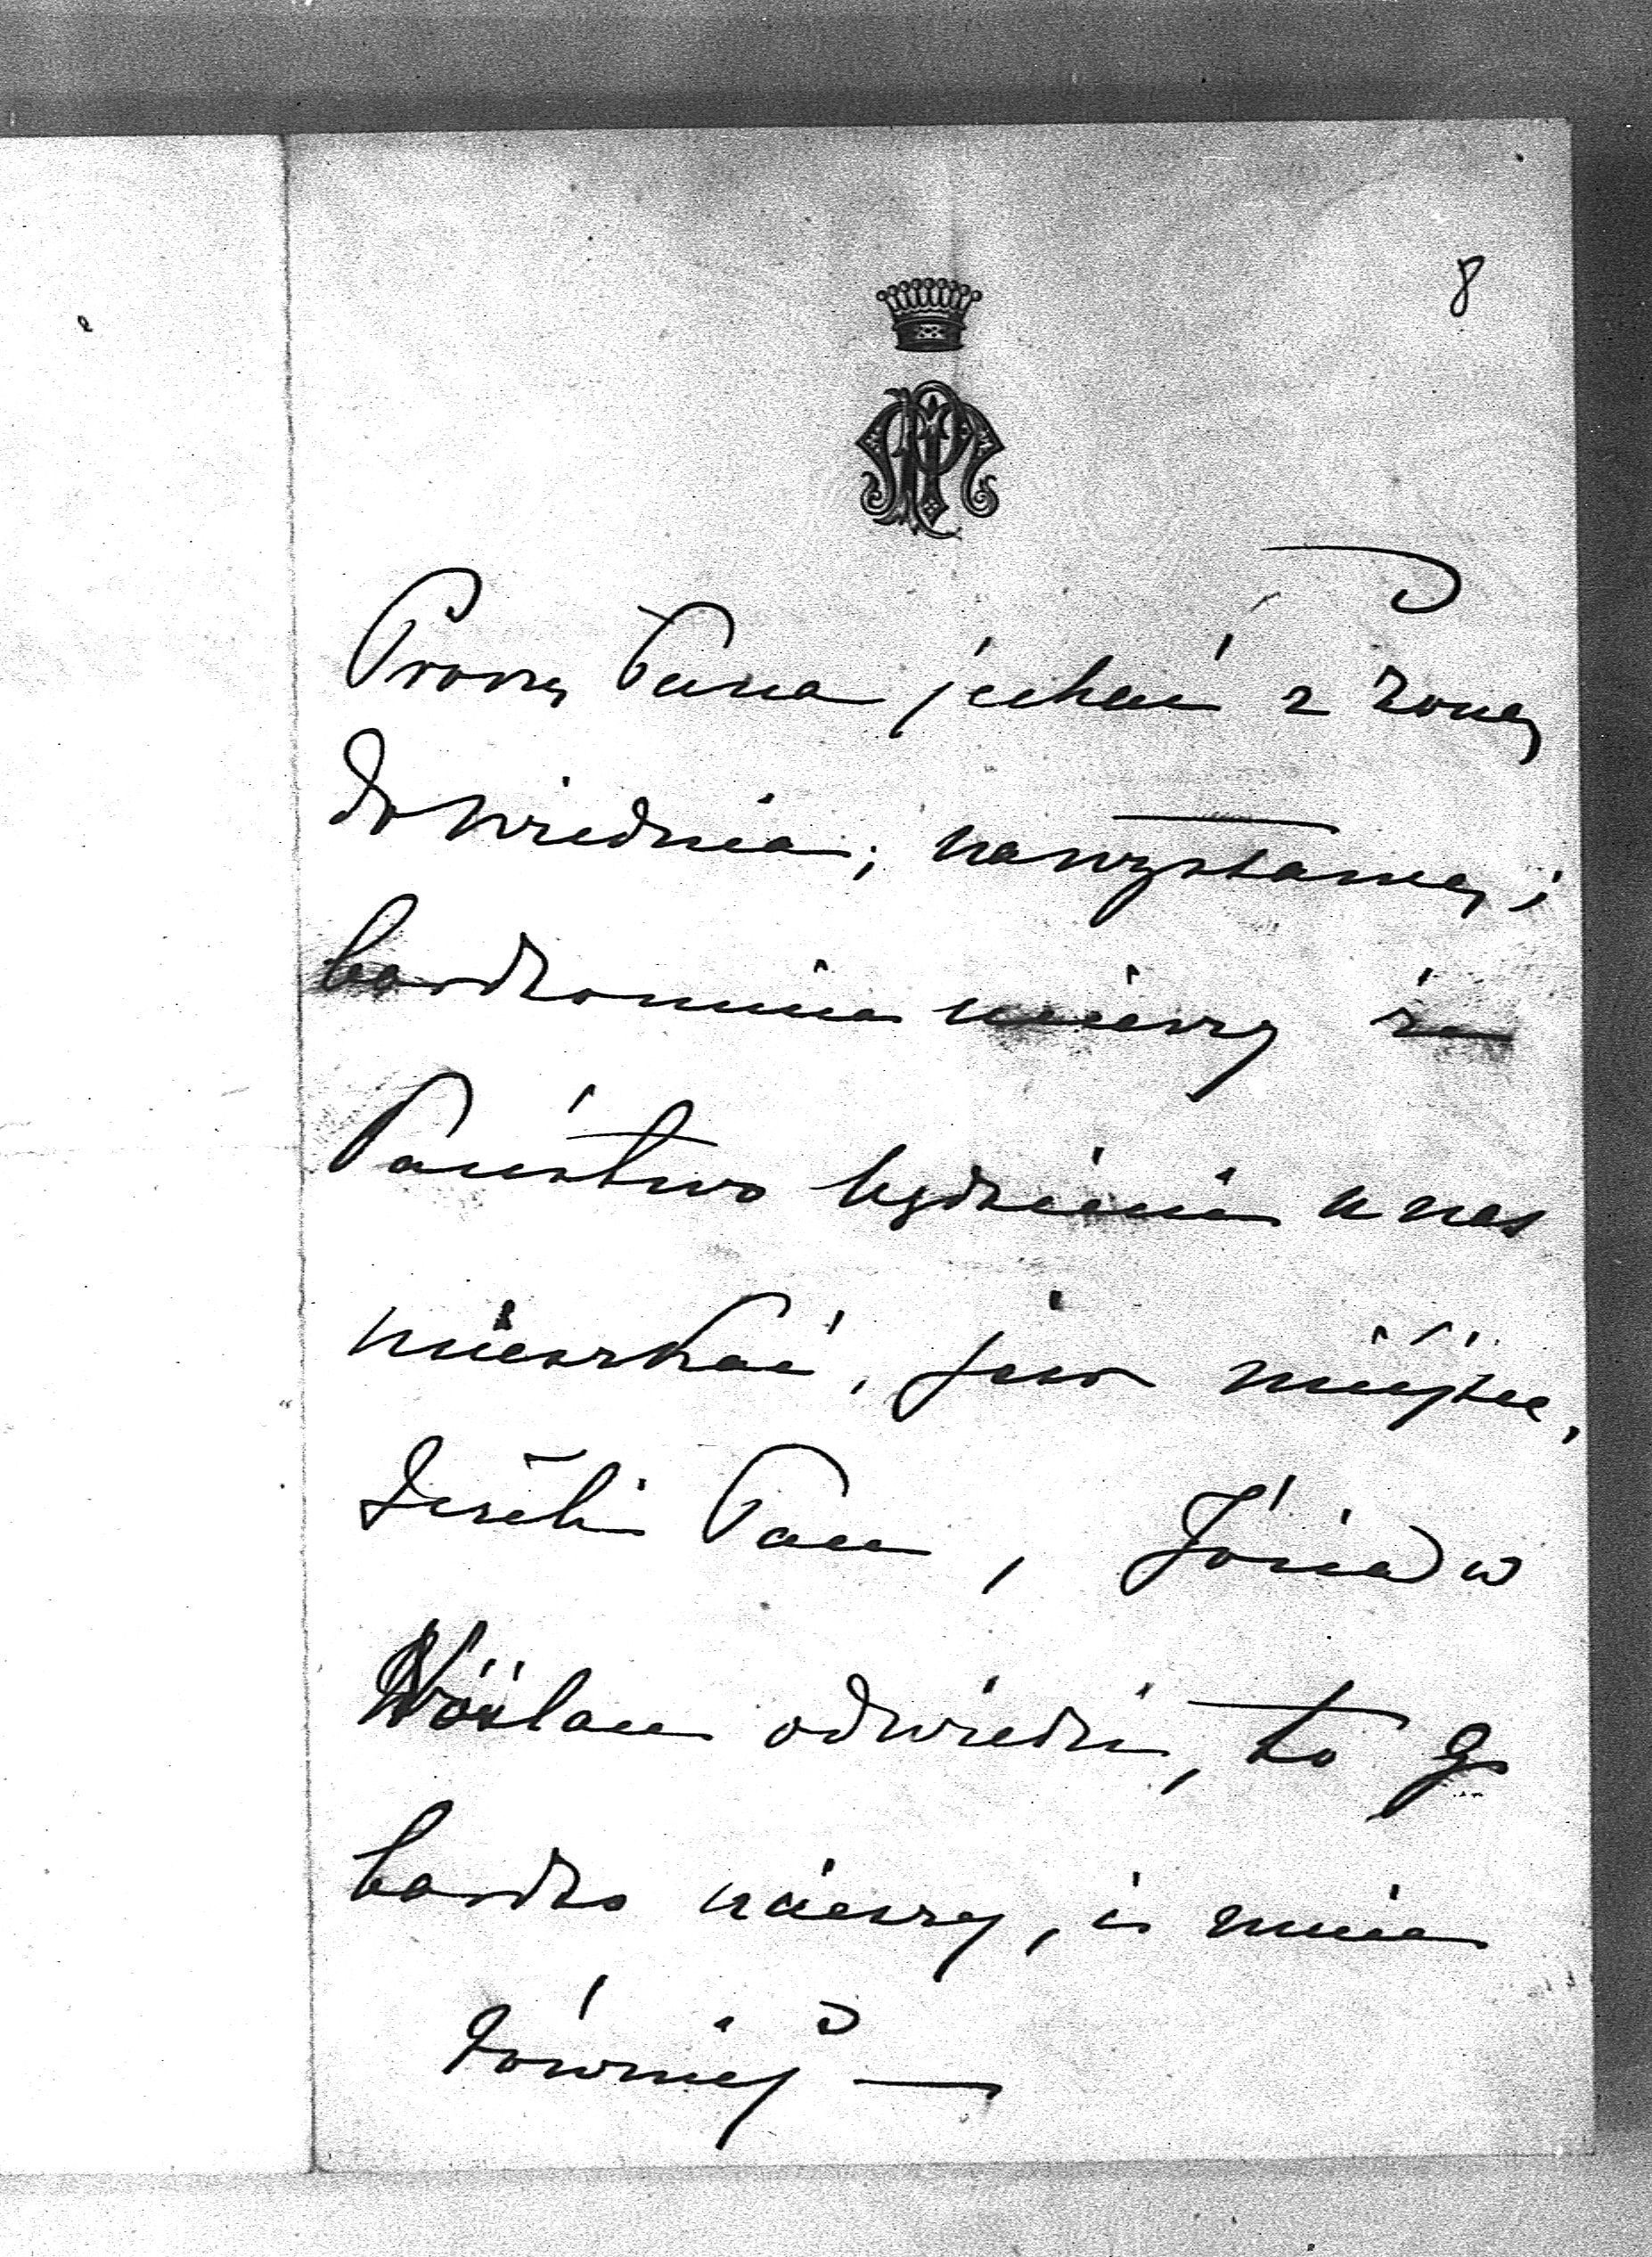 8
Proszę Pana jechać z żoną
do Wiednia; na wystawę;
bardzo mnie ucieszy że
Państwo będziecie u nas
mieszkać, jest miejsce,
Jeżeli Pan, Józia w
Vöslau odwiedzi, to go
bardzo ucieszy, i mnie
również —